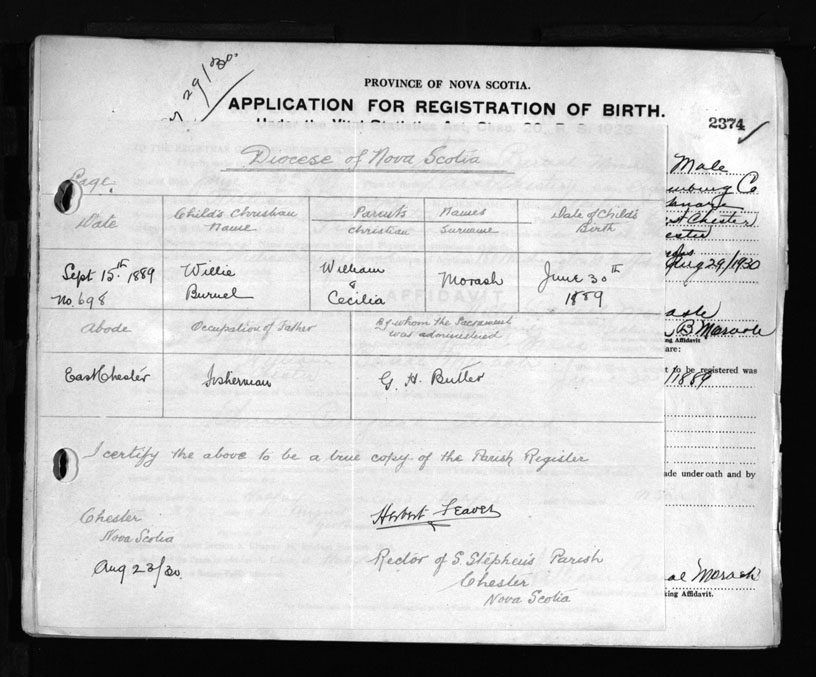 29/30.
PROVINCE OF NOVA SCOTIA.
APPLICATION FOR REGISTRATION OF BIRTH.
2374
Under the Vital Statistics Act, Chap. 20, R. S. 1923
Diocese of Nova Scotia
Page
Date
Child's Christian
Name
Parents Names
Christian Surname
Date of Child's
Birth
Sept 15.th 1889
No. 698
Willie
Burnel
William
&
Cecilia
Morash
June 30th
1889
Abode
Occupation of Father
By whom the Sacrament
was administered
East Chester
Fisherman
G. H. Butler
I certify the above to be a true copy of the Parish Register
Chester
Nova Scotia
Aug 23/30.
Herbert Leaver
Rector of S. Stephen's Parish
Chester
Nova Scotia
Male
nburg Co
t Chester
ester
Aug 29/1930
AFFIDAVIT
B Morash
king Affidavit
are:
t to be registered was
/1889
ade under oath and by
Morash
king Affidavit.